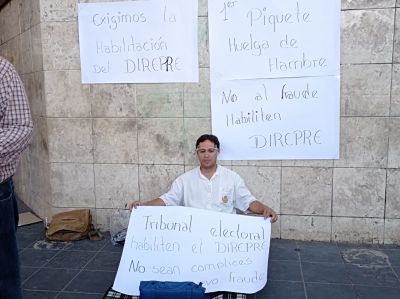 Exigimos la
Habilitación
Del DIREPRE
1er Piquete
Huelga de
Hambre
No al fraude
Habiliten
DIREPRE
Tribunal electoral
habiliten el DIREPRE
No sean complices
vo fraude